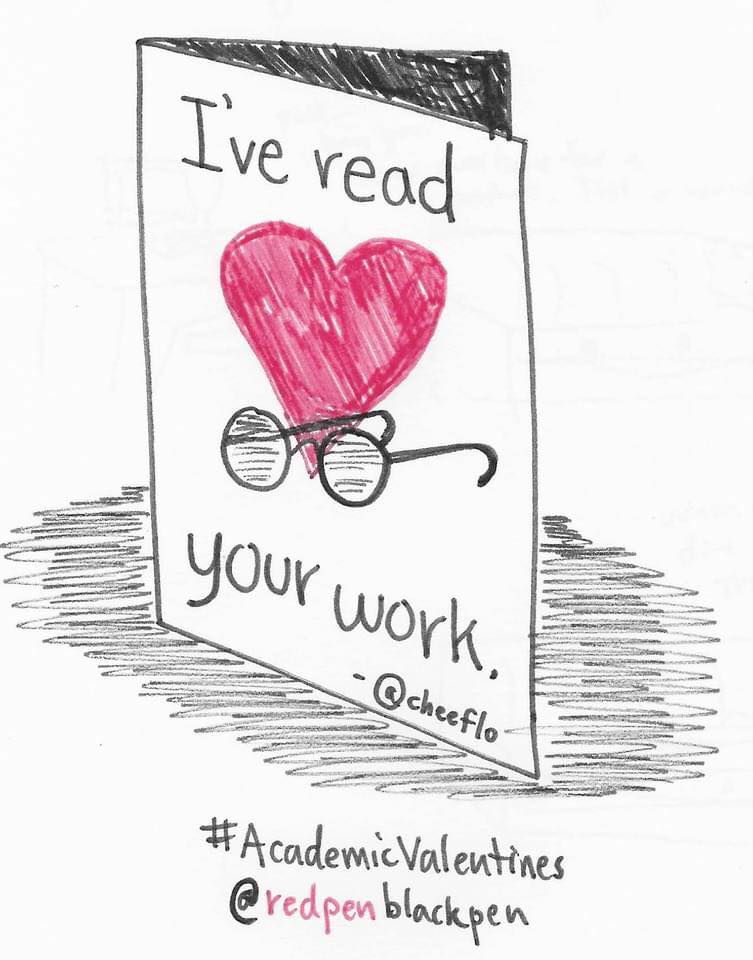 I've read
your work.
- @cheeflo
#AcademicValentines
@redpenblackpen